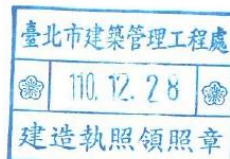 臺北市建築管理工程處
110.12.28
建造執照領照章